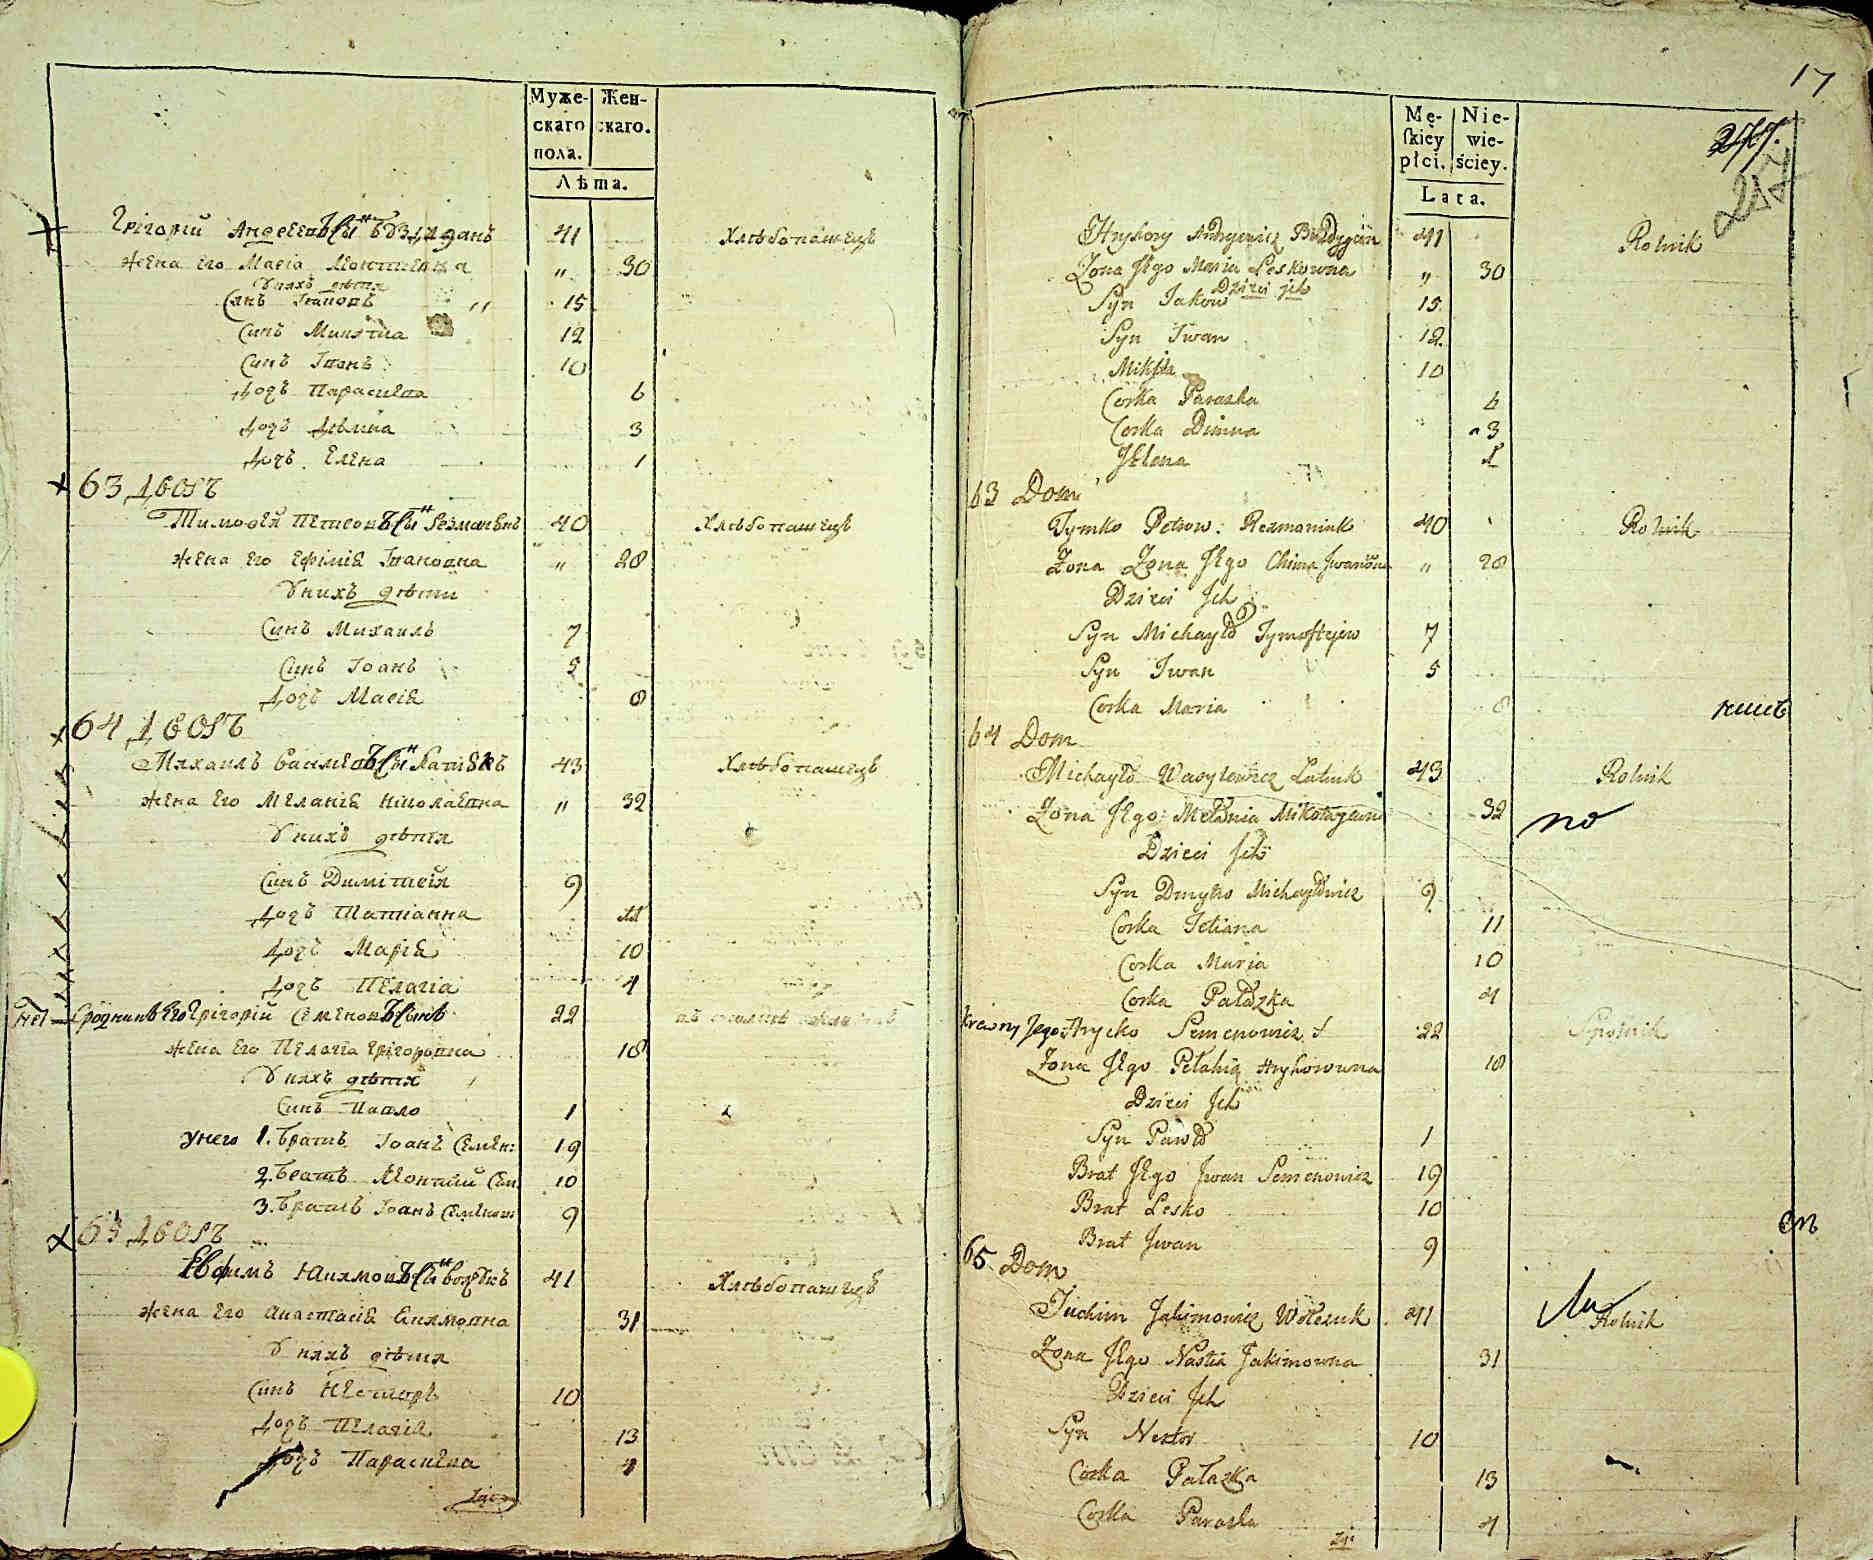 Муже-
скаго
пола.
Жен-
скаго.
Лѣта.
Григорій Андреевъ Сынъ 41 Хлѣбопашецъ
жена его Марія Леонтиевна „ 30
У нихъ дѣти
Синъ Іаковъ 15
Синъ Микита 12
Синъ Іванъ 10
дочь Параскева 6
дочь Домна 3
дочь Елена 1
63 дворъ
Тимофей Петровъ Сынъ 40 Хлѣбопашецъ
жена его Ефимія Івановна „ 28
У нихъ дѣти
Синъ Михаилъ 7
Синъ Іоанъ 5
дочь Марія 8
64 дворъ
Михаилъ Василевъ Сынъ 43 Хлѣбопашецъ
жена его Меланія Николаевна „ 32
У нихъ дѣти
Синъ Димитрій 9
дочь Татіанна 11
дочь Марія 10
дочь Пелагія 4
нет Сродникъ Его Григорій Семеновъ Сынъ 22
жена Его Пелагіа Григоровна 18
У нихъ дѣти
Синъ Павло 1
У него 1. Братъ Іоанъ Семен: 19
2. Братъ Леонтий Сем. 10
3. Братъ Іоанъ Семенов 9
65 дворъ
Евфимъ Якимовъ Сынъ 41 Хлѣбопашецъ
жена Его Анастасія Якимовна 31
У нихъ дѣти
Синъ Несторъ 10
дочь Пелагія 13
дочь Параскева 4
17
Mę-
ſkiey
płci.
Nie-
wie-
ściey.
Lata.
277.
217
Hryhory Andryewicz 41 Rolnik
Zona Jego Maria Leskowna „ 30
Dzieci jch
Syn Jakow 15
Syn Iwan 12
Mikita 10
Corka Paraska 6
Corka Dimna 3
Jelena 1
63 Dom
Tymko Petrow: Rezmaniuk 40 Rolnik
Zona Zona Jego Chima Jwanowna „ 28
Dzieci Jch
Syn Michayło Tymofiejew 7
Syn Iwan 5
Corka Maria 8
64 Dom
Michayło Wasylewicz Łatiuk 43 Rolnik
Zona Jego Mełania Mikołajewna 32 по
Dzieci Jch
Syn Dmytro Michayłowicz 9
Corka Tetiana 11
Corka Maria 10
Corka Pałazka 4
Krewny Jego Hrycko Semenowicz 22
Zona Jego Pełahia Hryhorowna 18
Dzieci Jch
Syn Pawło 1
Brat Jego Jwan Semenowicz 19
Brat Lesko 10
Brat Jwan 9
65 Dom
Juchim Jakimowicz 41 Rolnik
Zona Jego Nastia Jakimowna 31
Dzieci Jch
Syn Nestor 10
Corka Pałazka 13
Corka Paraska 4